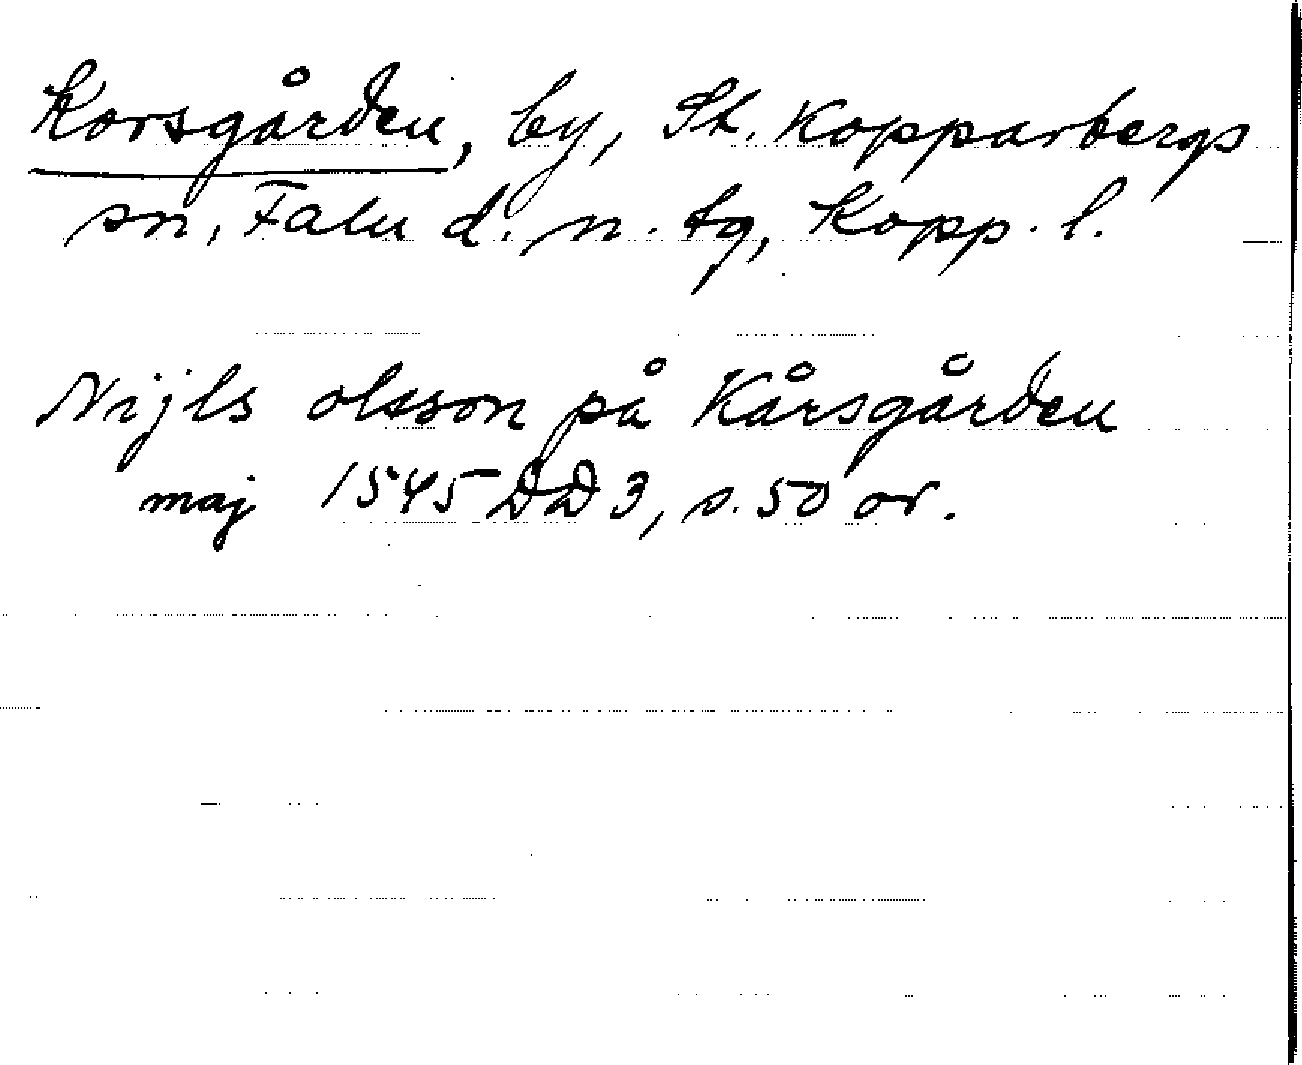 Korsgården, by, St. Kopparbergs
sn, Falu d. n. tg, Kopp. l.
Nijls olsson på Kårsgården
maj 1545 DD 3, s. 50 or.